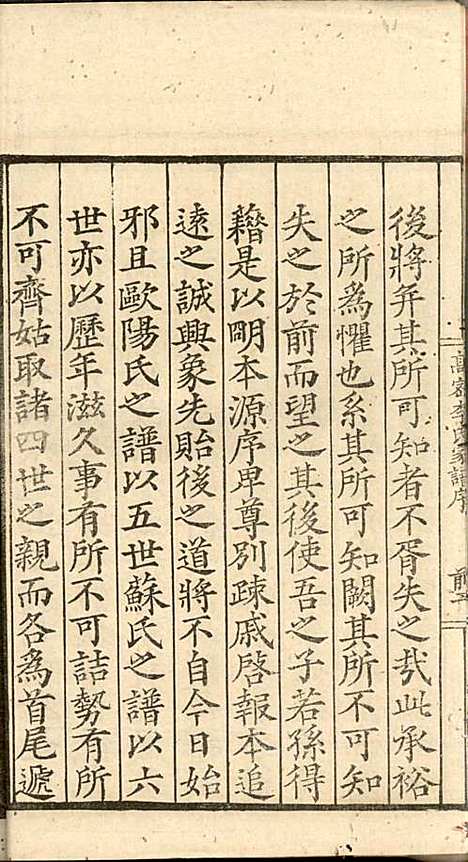 後將弁其所可知者不胥失之㢤此承裕
之所為懼也系其所可知闕其所不可知
失之於前而望之其後使吾之子若孫得
藉是以明本源序卑尊別疎戚啓報本追
遠之誠興象先貽後之道將不自今日始
邪且歐陽氏之譜以五世蘇氏之譜以六
世亦以歷年滋久事有所不可詰勢有所
不可齊姑取諸四世之親而各為首尾遞